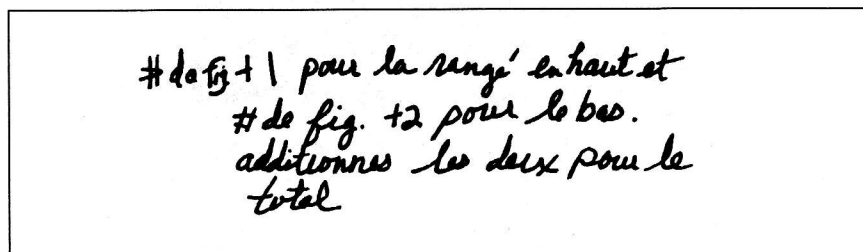 # de fig + 1 pour la rangé en haut et
# de fig. +2 pour le bas.
additionnes les deux pour le
total